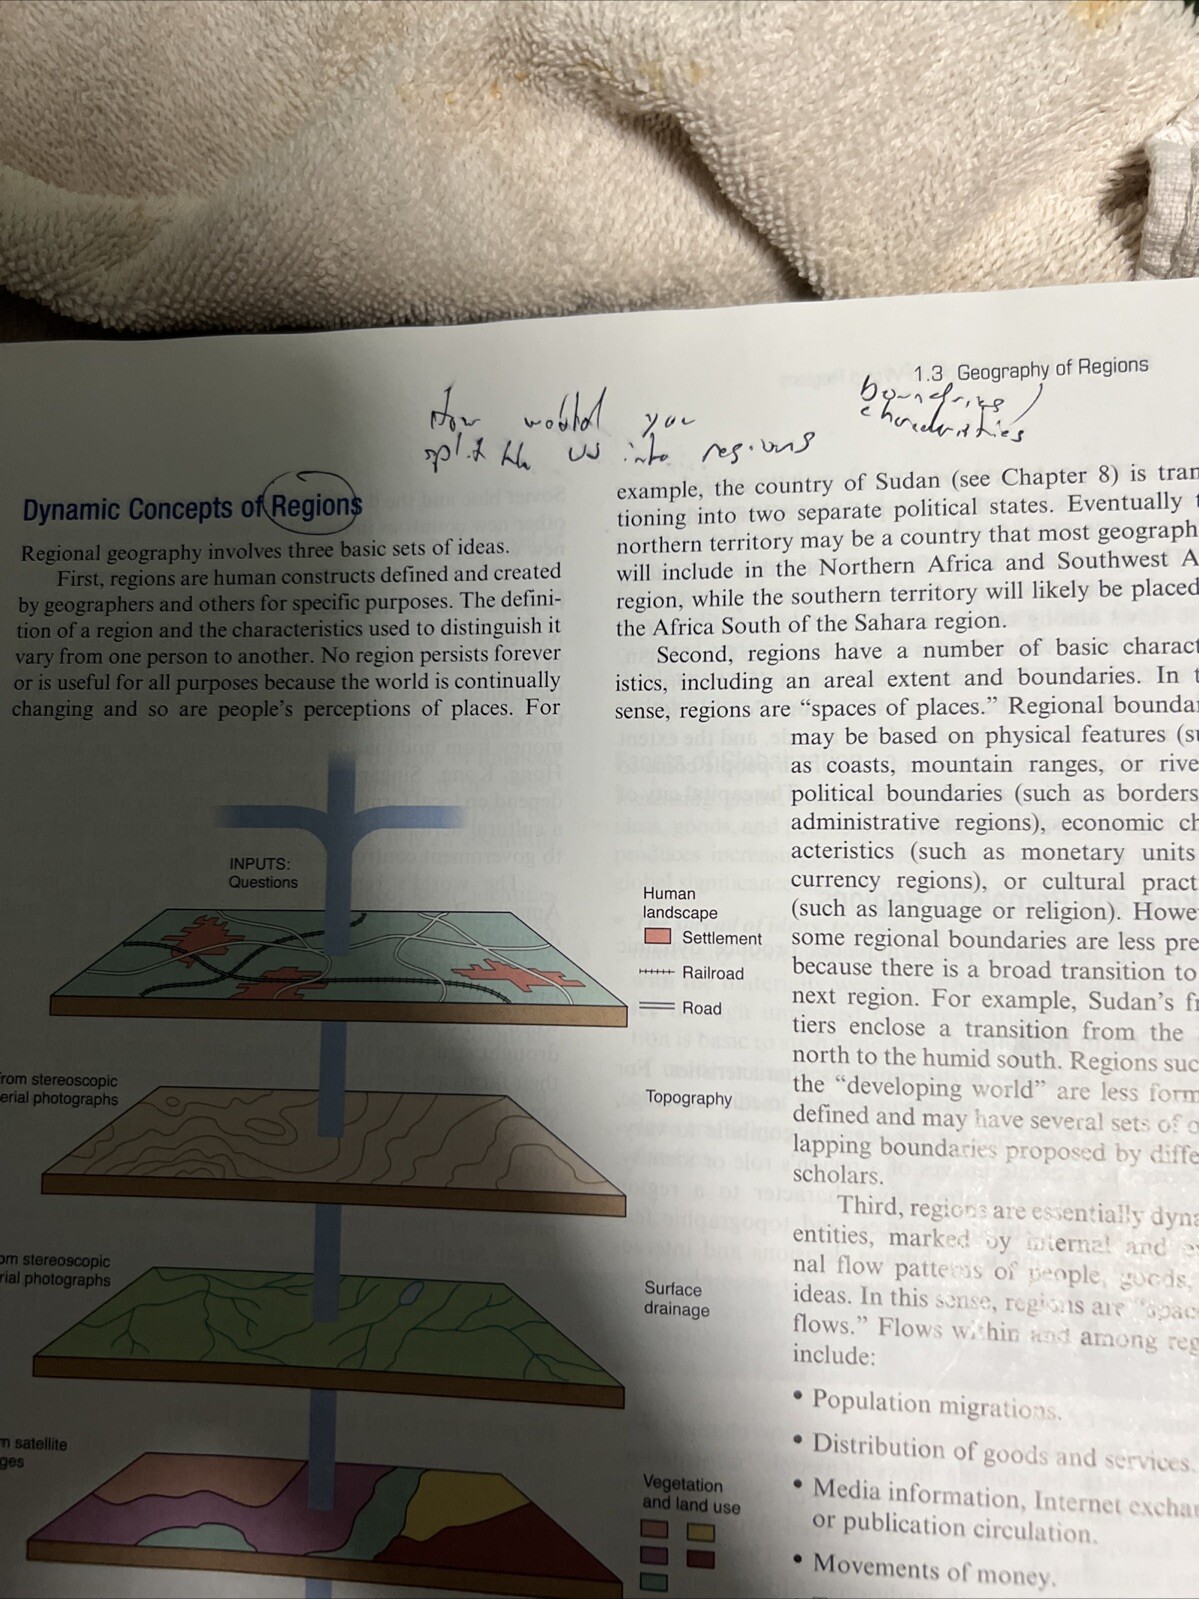 1.3 Geography of Regions
boundries
characteristics
How would you
split the US into regions
Dynamic Concepts of Regions
Regional geography involves three basic sets of ideas.
First, regions are human constructs defined and created
by geographers and others for specific purposes. The defini-
tion of a region and the characteristics used to distinguish it
vary from one person to another. No region persists forever
or is useful for all purposes because the world is continually
changing and so are people's perceptions of places. For
INPUTS:
Questions
Human
landscape
Settlement
Railroad
Road
rom stereoscopic
erial photographs
Topography
om stereoscopic
rial photographs
Surface
drainage
m satellite
ges
Vegetation
and land use
example, the country of Sudan (see Chapter 8) is tran
tioning into two separate political states. Eventually t
northern territory may be a country that most geograph
will include in the Northern Africa and Southwest A
region, while the southern territory will likely be placed
the Africa South of the Sahara region.
Second, regions have a number of basic charact
istics, including an areal extent and boundaries. In t
sense, regions are “spaces of places.” Regional bounda
may be based on physical features (su
as coasts, mountain ranges, or rive
political boundaries (such as borders
administrative regions), economic ch
acteristics (such as monetary units
currency regions), or cultural pract
(such as language or religion). Howe
some regional boundaries are less pre
because there is a broad transition to
next region. For example, Sudan's fr
tiers enclose a transition from the
north to the humid south. Regions suc
the “developing world” are less form
defined and may have several sets of o
lapping boundaries proposed by diffe
scholars.
Third, regions are essentially dyna
entities, marked by internal and e
nal flow patterns of people, goods,
ideas. In this sense, regions are “spac
flows.” Flows within and among reg
include:
• Population migrations.
• Distribution of goods and services.
• Media information, Internet excha
or publication circulation.
• Movements of money.